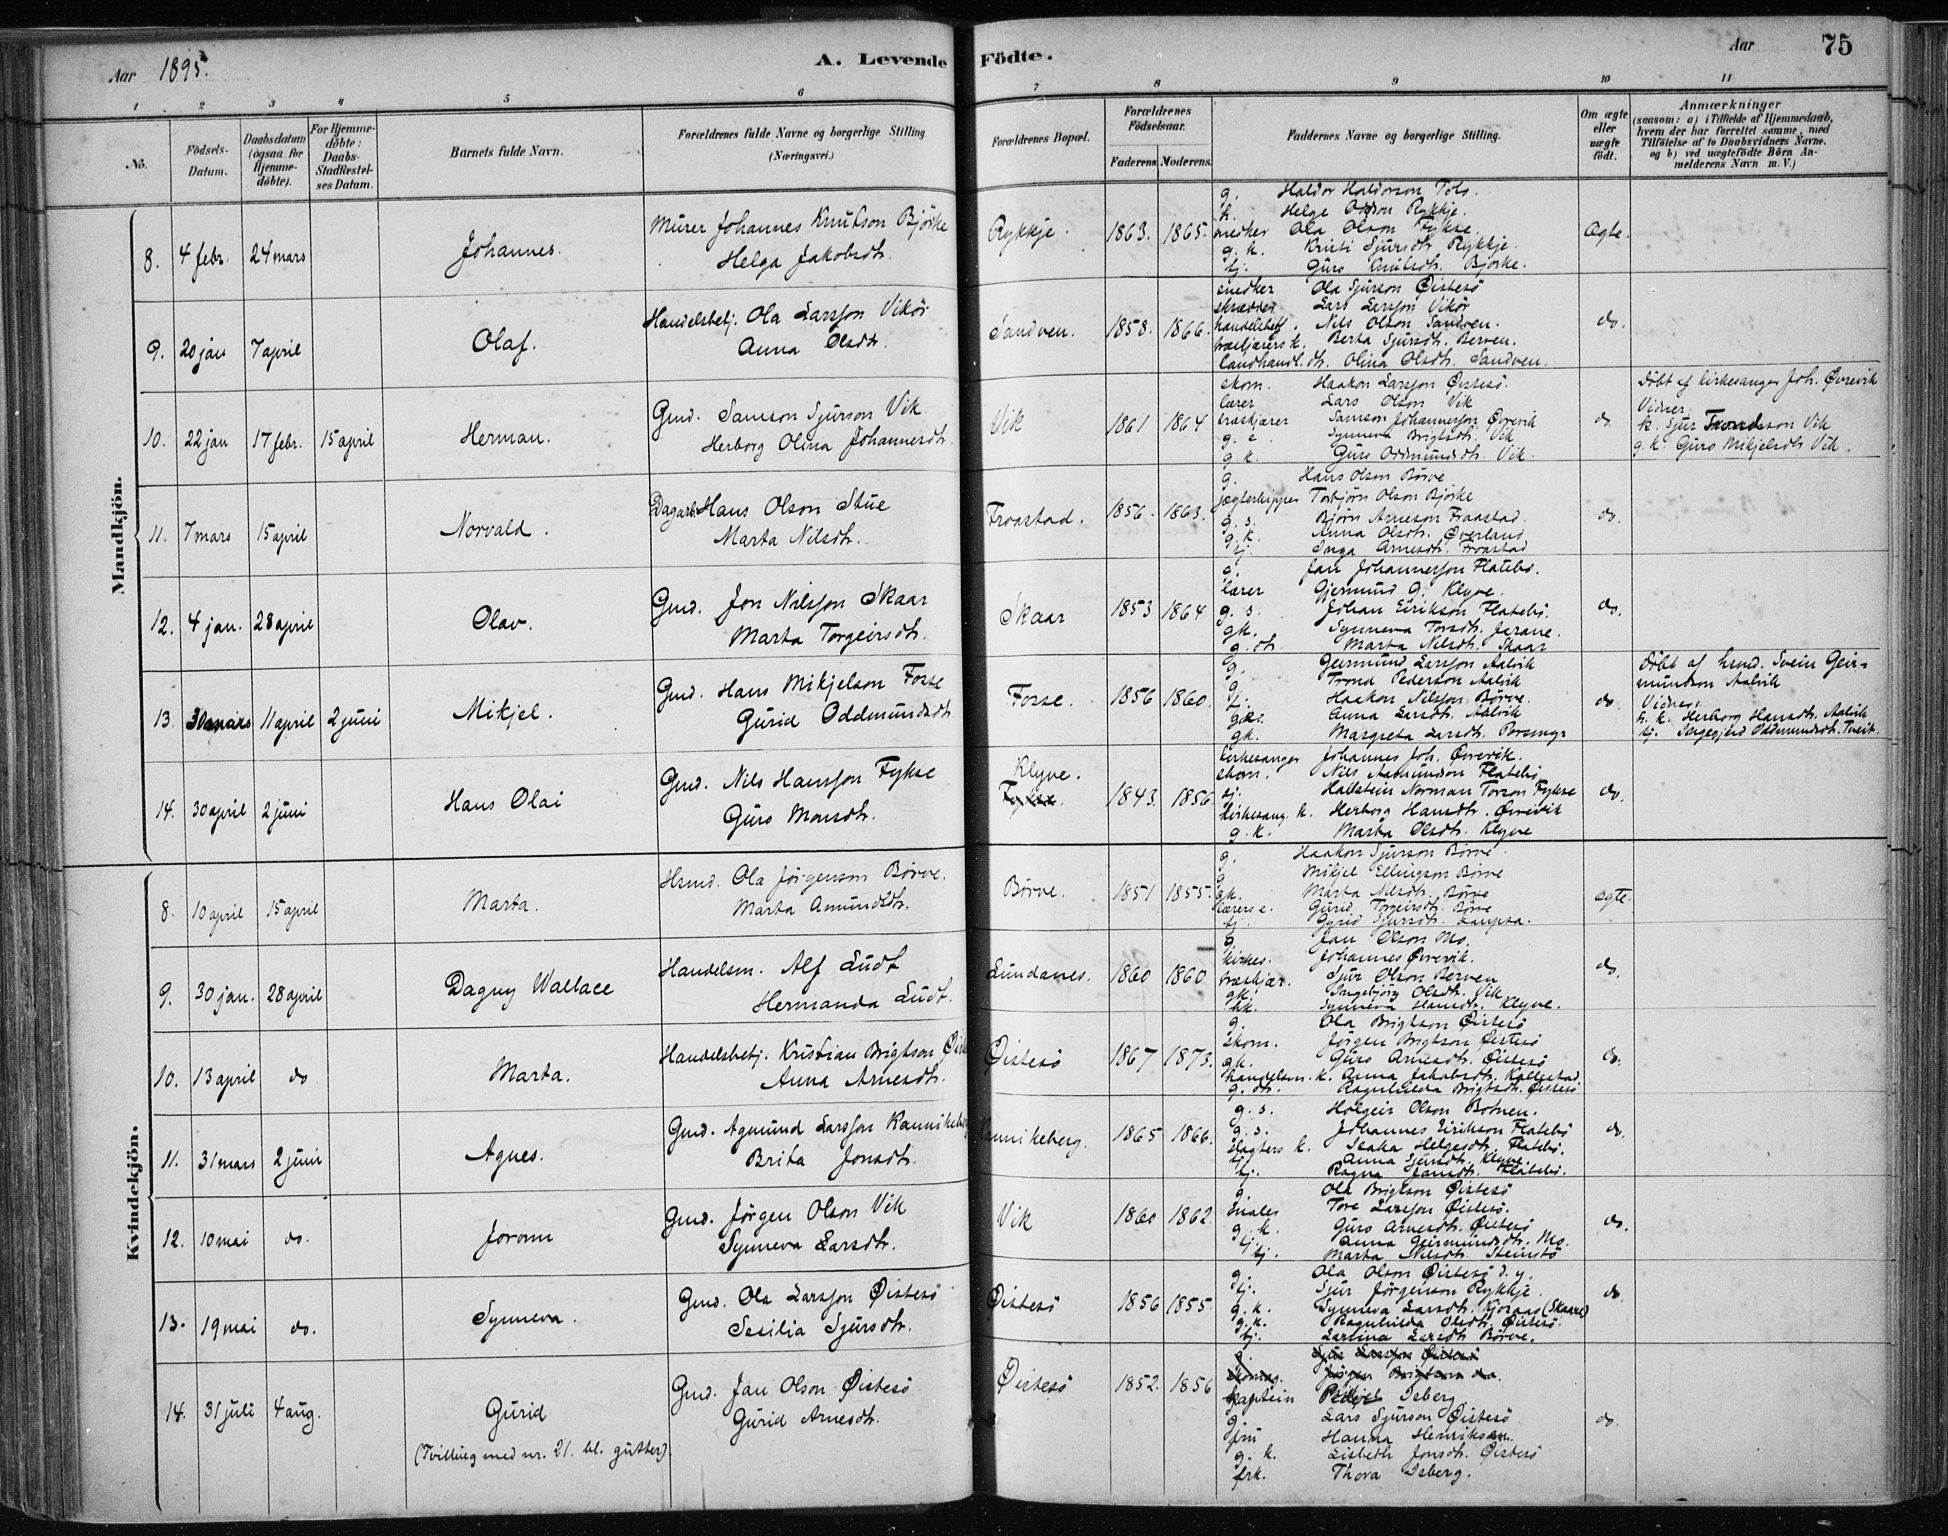 Aar 1895.
A. Levende Födte.
Aar
75
1 2 3 4 5 6 7 8 9 10 11
No.
Födsels-Datum.
Daabsdatum (ogsaa for Hjemme-döbte).
For Hjemme-döbte: Daabs-Stadfæstel-ses Datum.
Barnets fulde Navn.
Forældrenes fulde Navne og borgerlige Stilling. (Næringsvei.)
Forældrenes Bopæl.
Forældrenes Födselsaar.
Faderens. Moderens.
Faddernes Navne og borgerlige Stilling.
Om ægte eller uægte födt.
Anmærkninger
(saasom: a) i Tilfælde af Hjemmedaab, hvem der har forrettet samme, med Tilföielse af to Daabsvidners Navne. og b) ved uægtefödte Börn Anmelderens Navn m. V.)
Mandkjön.
8. 4 febr. 24 mars Johannes. Murer Johannes Knutson Bjørke
Helga Jakobsdtr. Rykkje. 1863. 1865. Ægte.
g. Haldor Haldorson Tolo.
h. Helge Oddson Rykkje.
snedker Ola Olson Fykse.
g. k. Kristi Sjursdtr. Rykkje.
tj. Guro Knutsdtr. Bjørke.
9. 20 jan 7 april Olaf. Handelsbetj. Ola Larsson Vikør
Anna Olsdtr. Sandven. 1858. 1866. do.
snedker Ola Sjurson Øistesø
skrædder Lars Larsson Vikør
handelsbetj. Nils Olson Sandven.
træskjærers k. Berta Sjursdtr. Berven.
landhandl. dtr. Olina Olsdtr. Sandven.
10. 22 jan 17 febr. 15 april Herman. Gmd. Samson Sjurson Vik
Herborg Olina Johannesdtr. Vik 1861 1864 do
skom. Haakon Larsson Øistesø.
lærer Lars Olson Vik
træskjærer Samson Johannesson Øvrevik
g. e. Synneva Brigtsdtr. Vik
g. k. Guro Oddmundsdtr. Vik.
Döbt af kirkesanger Joh. Øvrevik
Vidner
k. Sjur Trondson Vik
g. k. Guro Mikjelsdtr. Vik.
11. 7 mars 15 april Norvald. Dagarb. Hans Olson Stue
Marta Nilsdtr. Froastad. 1856. 1863. do.
g. Hans Olson Børve
jægteskipper Torbjørn Olson Bjørke
g. s. Bjørn Arneson Froastad.
g. k. Anna Olsdtr. Øverland
tj. Inga Arnesdtr. Froastad
12. 4 jan. 28 april Olav. Gmd. Jon Nilsson Skaar
Marta Torgeirsdtr. Skaar 1853 1864 do.
g. Jan Johannesson Flatebø.
lærer Gjermund G. Klyve.
g. s. Johan Eirikson Flatebø
gk. Synneva Torsdtr. Jarane.
g. dtr. Marta Nilsdtr. Skaar
13. 30 mars 11 april 2 juni Mikjel. Gmd. Hans Mikjelson Fosse
Gurid Oddmundsdtr. Fosse. 1856 1860. do.
g. Geirmund Larsson Aalvik
g. Trond Pederson Aalvik
tj. Haakon Nilsson Børve.
gk. Anna Larsdtr. Aalvik
gk. Margreta Larsdtr.
Döbt af hmd. Svein Geir-
mundson Aalvik
Vidner:
h. k. Herborg Hansdtr. Aalvik
tj. Ingegjerd Oddmundsdtr. Tveit.
14. 30 april 2 juni Hans Olai Gmd. Nils Hansson Fykse
Guro Monsdtr. Klyve. Fykse. 1843. 1856. do.
kirkesanger Johannes Joh. Øvrevik.
skom. Nils Aamundson Flatebø
tj. Halstein Norman Torson Fykse
kirkesang. k. Herborg Hansdtr. Øvrevik
g. k. Marta Olsdtr. Klyve
Kvindekjön.
8. 10 april 15 april Marta. Hsmd. Ola Jørgenson Børve.
Marta Amundsdtr. Børve. 1851 1855. ægte.
g. Haakon Sjurson Børve
g. Mikjel Ellingson Børve
gk. Marta Nilsdtr. Børve
lærers e. Gurid Torgeirsdtr. Børve
tj. Gyrid Sjursdtr. Laupsa.
9. 30 jan. 28 april Dagny Wallace Handelsm. Alf Ludt
Hermanda Ludt. Lundanes. 1860 1860 do.
g. Jan Olson Mo.
kirkes. Johannes Øvrevik.
træskjær. Sjur Olson Berven
gk. Ingebjørg Olsdtr. Vik
hk. Synneva Hansdtr. Klyve.
10. 13 april do Marta. Handelsbetj. Kristian Brigtson Øist
Anna Arnesdtr. Øistesø 1867 1873. do.
g. Ola Brigtson Øistesø
skom. Jørgen Brigtson Øistesø
gk. Guro Arnesdtr. Øistesø
handelsm. k. Anna Jakobsdtr. Kallestad.
g. dtr. Ragnhilda Brigtsdtr. Øistesø
11. 31 mars 2 juni Agnes. Gmd. Agmund Larsson Kannikeberg
Brita Jonsdtr. Kannikeberg. 1865 1866. do.
g. s. Holgeir Olson Botnen.
g. s. Johannes Eirikson Flatebø
slagters k. Helgesdtr. Flatebø.
tj. Anna Sjursdtr. Klyve
tj. Ragna Jansdtr. Flatebø.
12. 10 mai do. Joronn Gmd. Jørgen Olson Vik
Synneva Larsdtr. Vik 1860 1862. do.
g. Ola Brigtson Øistesø
Tore Larsson Øistesø.
g. k. Guro Arnesdtr. Øistesø
tj. Anna Geirmundsdtr. Mo.
tj. Marta Nilsdtr. Steinstø
13. 19 mai do. Synneva. Gmd. Ola Larsson Øistesø
Sesilia Sjursdtr. Øistesø 1856 1855. do.
g. Ola Olson Øistesø d. y.
tj. Sjur Jørgenson Rykkje.
g. k. Synneva Larsdtr. Kjosaas (Skaare)
g. k. Ragnhilda Olsdtr. Øistesø.
tj. Larsina Larsdtr Børve.
14. 31 juli 4 aug. Gurid Gmd. Jan Olson Øistesø
Gurid Arnesdtr. Øistesø 1852. 1856 do.
(Tvilling med nr. 21. bl. gutter)
g. Sjur Larsson Øistesø
Jørgen Brigtson do.
kaptein Isberg
g. Lars Sjurson Øistesø
fru Hanna Henriksen.
g. k. Lisbeth Jonsdtr. Øistesø
frk. Thora Isberg.